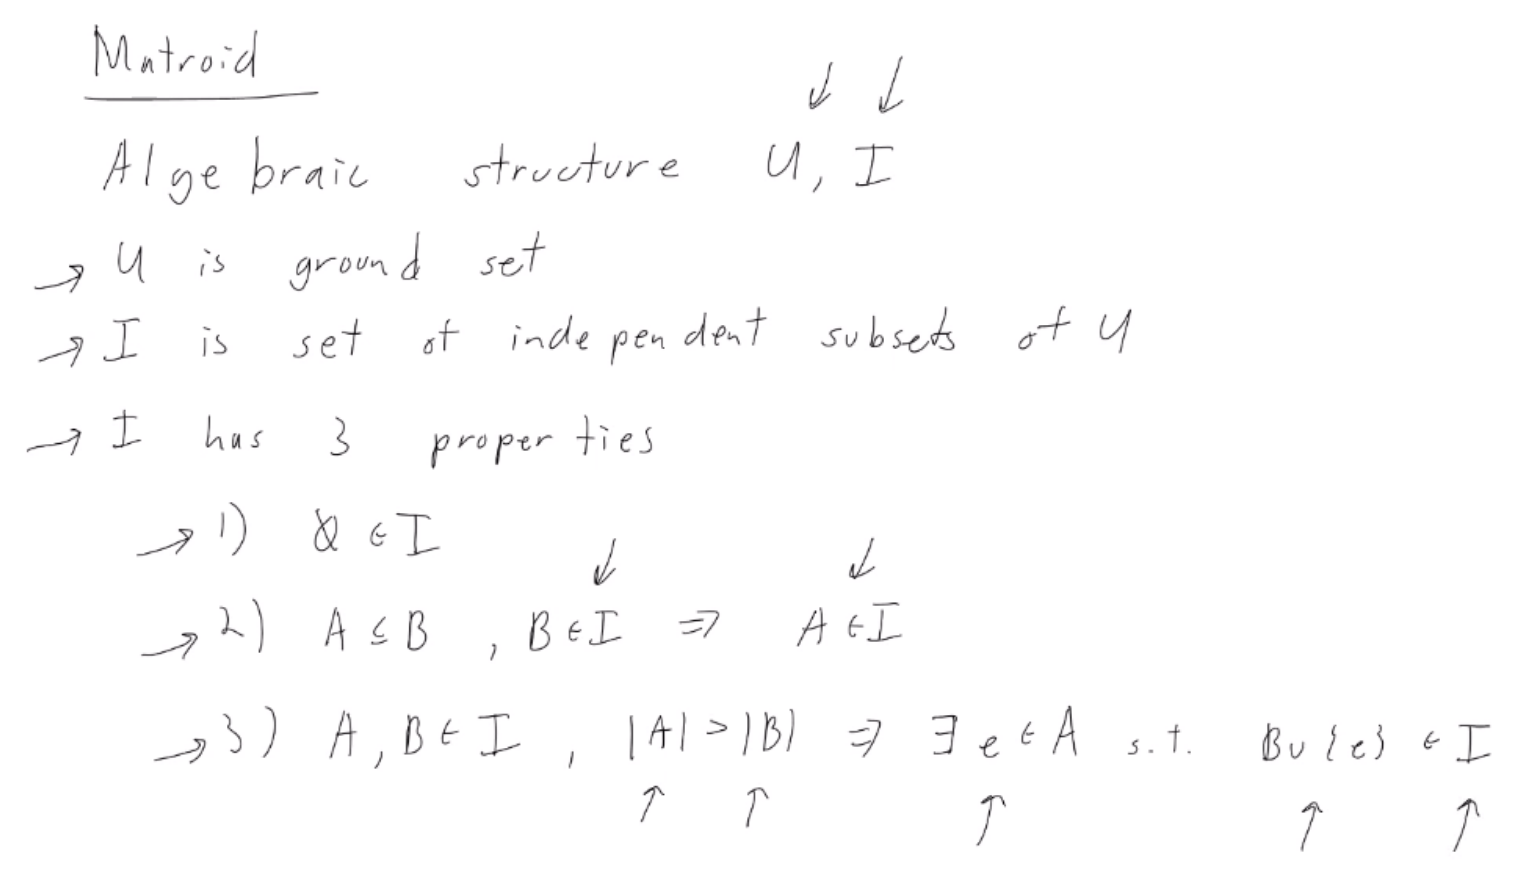 Matroid
↓ ↓
Algebraic structure U, I
→ U is ground set
→ I is set of independent subsets of U
→ I has 3 properties
→ 1) ∅ ∈ I
↓ ↓
→ 2) A ⊆ B , B ∈ I ⇒ A ∈ I
→ 3) A, B ∈ I , |A| > |B| ⇒ ∃ e ∈ A s.t. B ∪ {e} ∈ I
↑ ↑ ↑ ↑ ↑